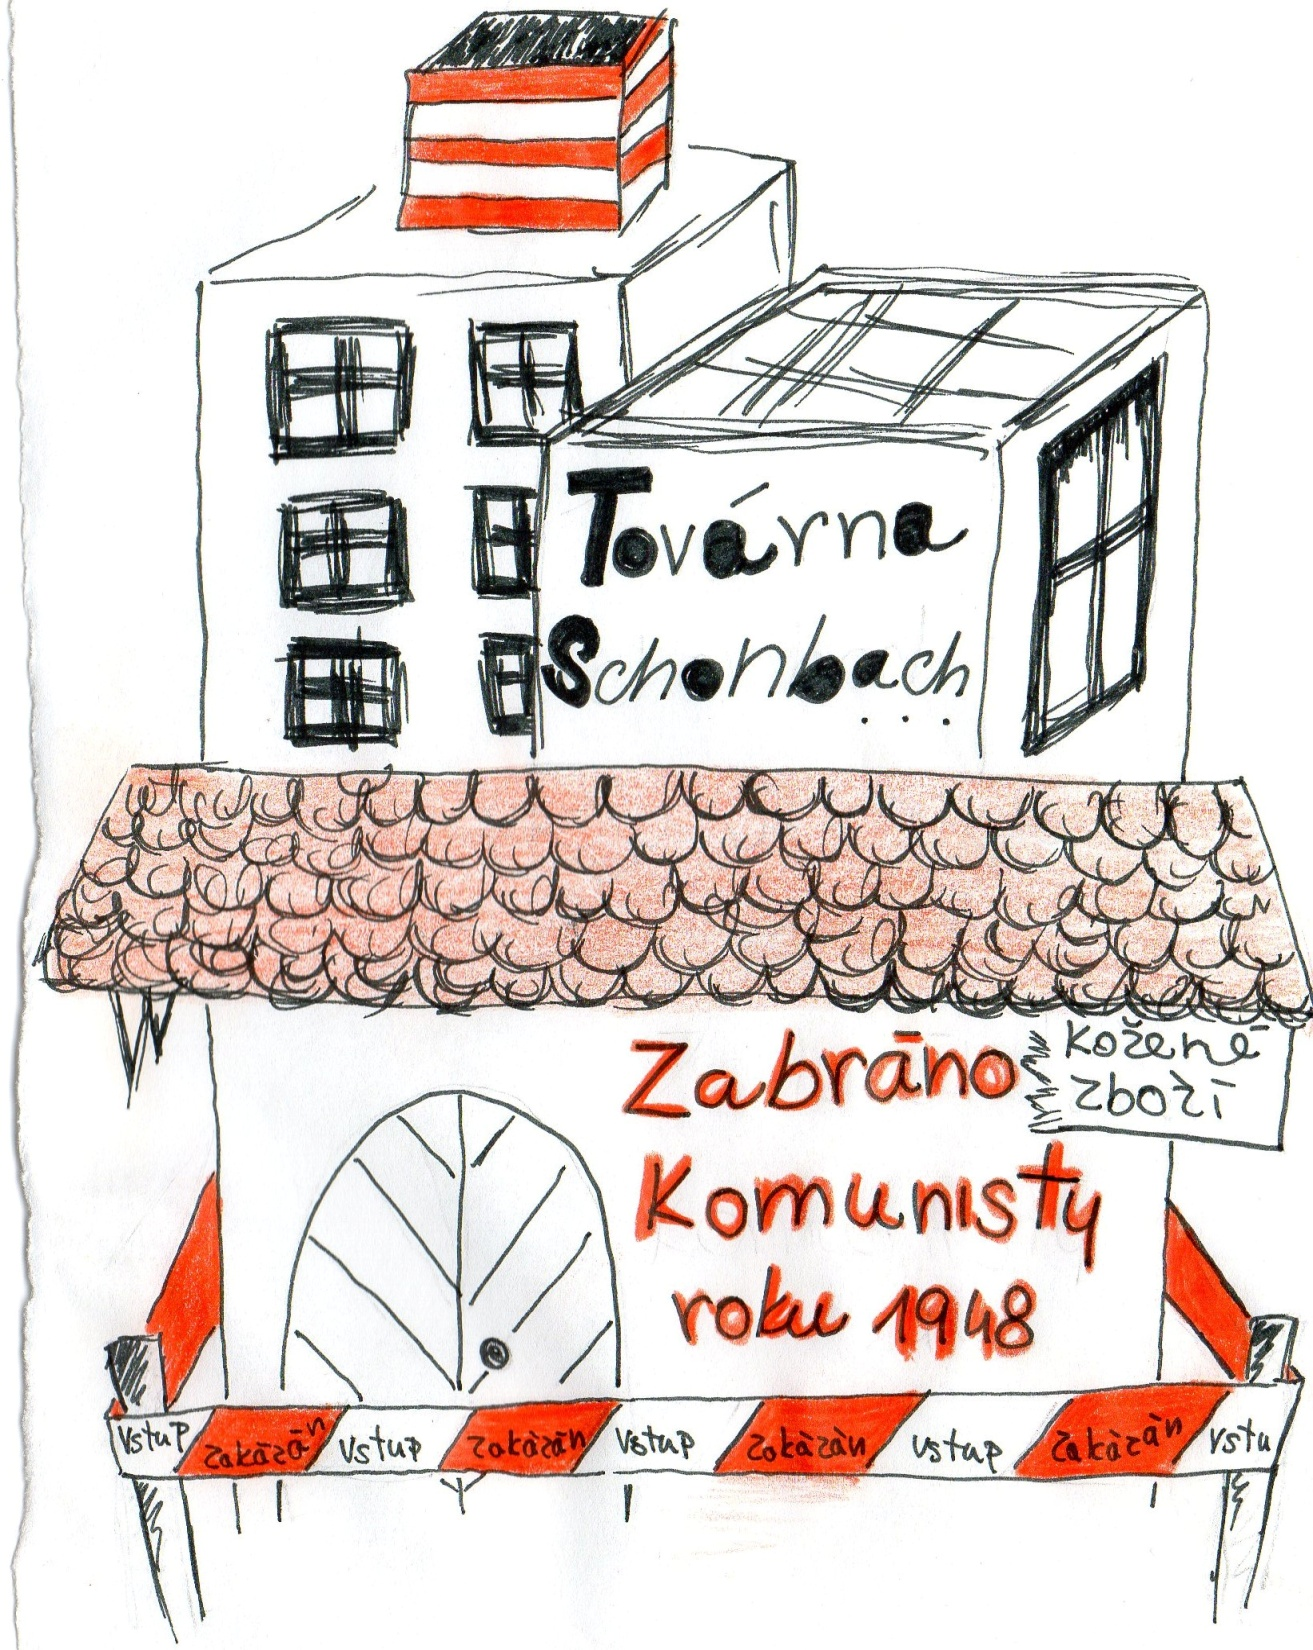 Továrna
Schonbach
...
Kožené
zboží
Zabráno
Komunisty
roku 1948
vstup zakázán vstup zakázán vstup zakázán vstup zakázán vstu